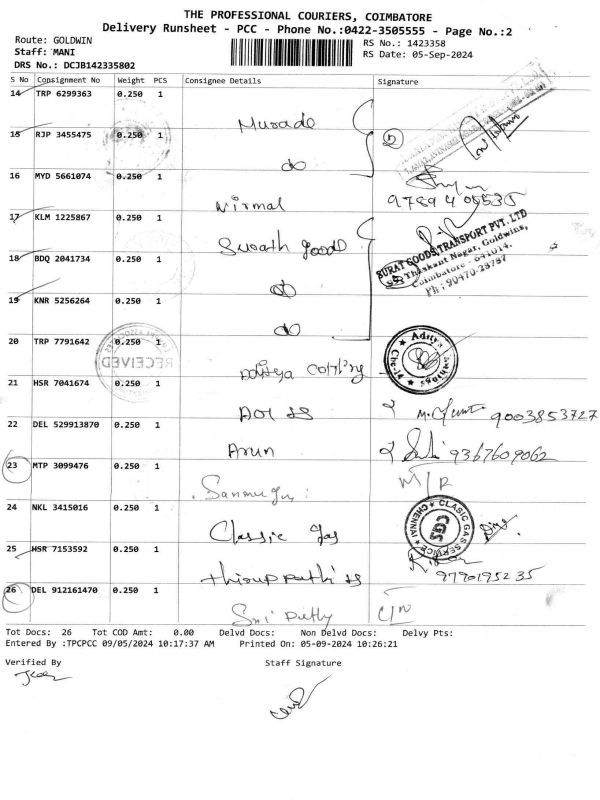 THE PROFESSIONAL COURIERS, COIMBATORE
Delivery Runsheet - PCC - Phone No.:0422-3505555 - Page No.:2
Route: GOLDWIN
RS No.: 1423358
Staff: MANI
RS Date: 05-Sep-2024
DRS No.: DCJB142335802
S No Consignment No Weight PCS Consignee Details Signature
14 TRP 6299363 0.250 1
Murade
15 RJP 3455475 0.250 1
do
16 MYD 5661074 0.250 1
Nirmal
17 KLM 1225867 0.250 1
Surath goods
SURAT GOODS TRANSPORT PVT. LTD
Thaskant Nagar, Goldwins,
Coimbatore - 641014.
Ph : 90470-28787
18 BDQ 2041734 0.250 1
do
19 KNR 5256264 0.250 1
do
20 TRP 7791642 0.250 1
RECEIVED
Aditya
21 HSR 7041674 0.250 1
9003853727
22 DEL 529913870 0.250 1
Arun
9367609062
23 MTP 3099476 0.250 1
24 NKL 3415016 0.250 1
Classic Gas
CLASIC GAS SERVICE
CHENNAI
CGS
25 HSR 7153592 0.250 1
9790195235
26 DEL 912161470 0.250 1
Tot Docs: 26 Tot COD Amt: 0.00 Delvd Docs: Non Delvd Docs: Delvy Pts:
Entered By :TPCPCC 09/05/2024 10:17:37 AM Printed On: 05-09-2024 10:26:21
Verified By Staff Signature